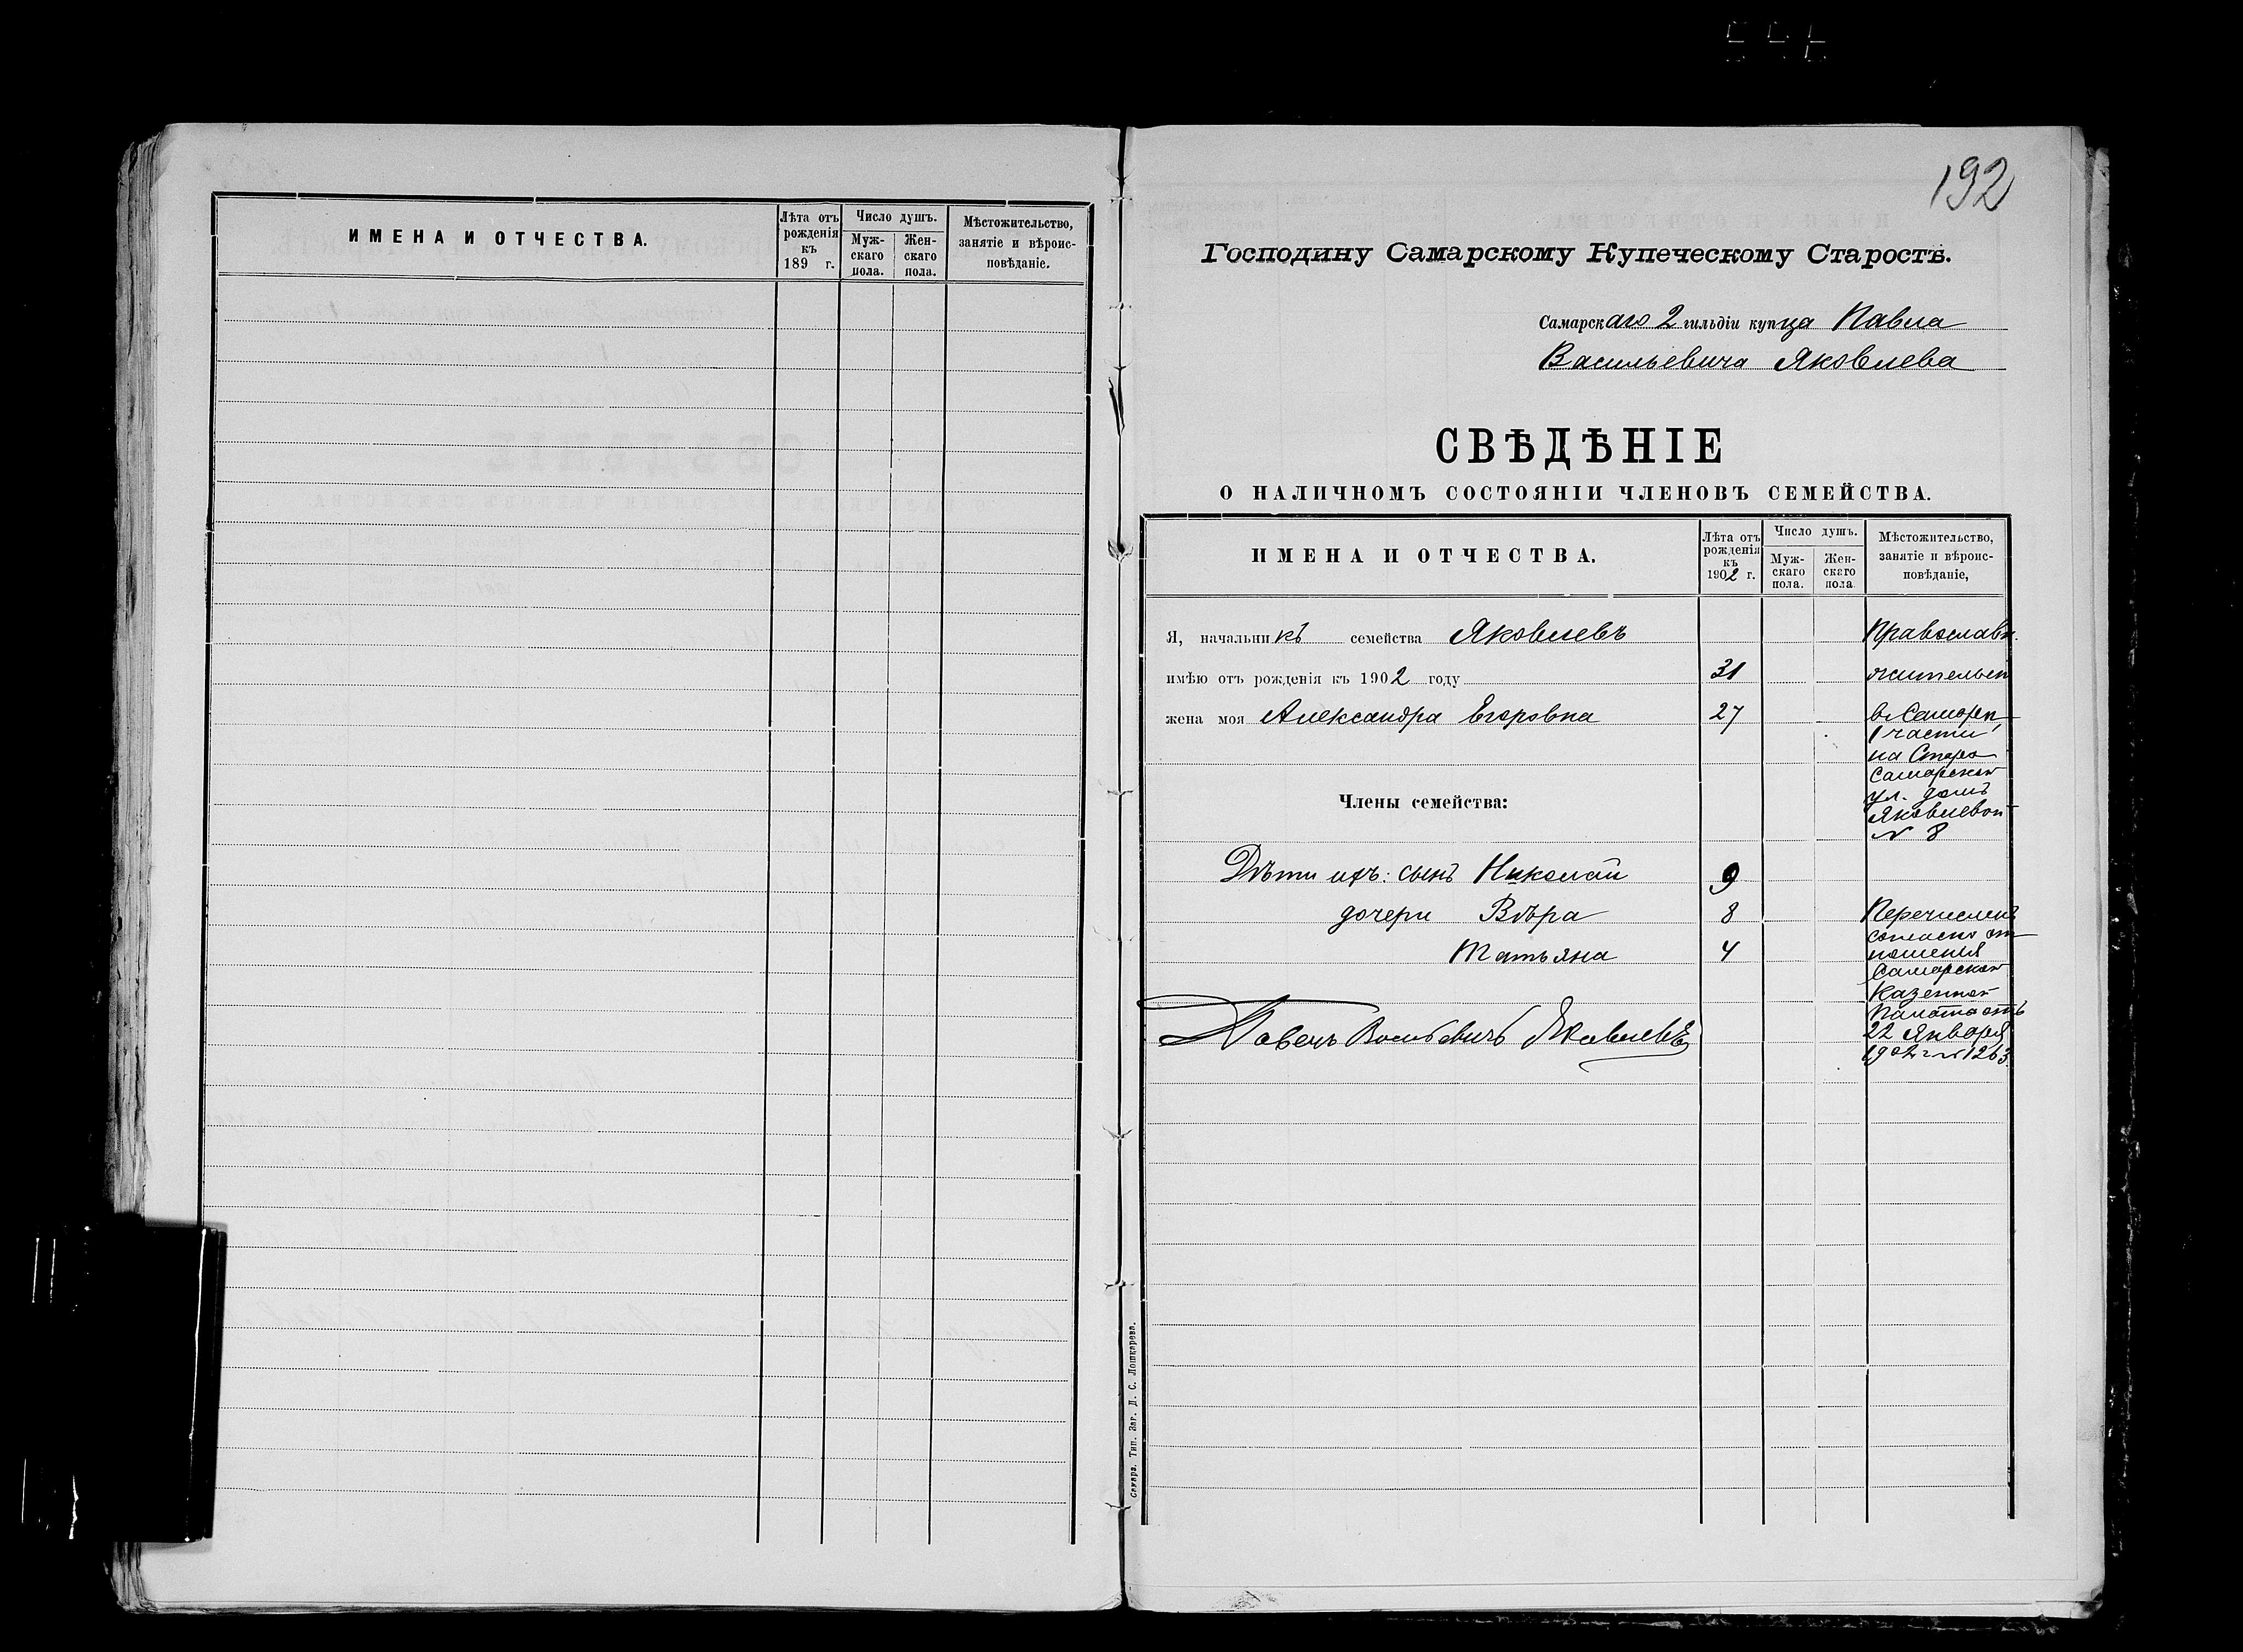 ИМЕНА И ОТЧЕСТВА.
Лѣта отъ рожденія къ 189 г.
Число душъ.
Муж-скаго пола.
Жен-скаго пола.
Мѣстожительство, занятіе и вѣроис-повѣданіе.
192
Господину Самарскому Купеческому Старостѣ.
Самарскаго 2 гильдіи купца Павла
Васильевича Яковлева
СВѢДѢНІЕ
О НАЛИЧНОМЪ СОСТОЯНІИ ЧЛЕНОВЪ СЕМЕЙСТВА.
ИМЕНА И ОТЧЕСТВА.
Лѣта отъ рожденія къ 1902 г.
Число душъ.
Муж-скаго пола.
Жен-скаго пола
Мѣстожительство, занятіе и вѣроис-повѣданіе,
Я, начальникъ семейства Яковлевъ
Православн.
имѣю отъ рожденія къ 1902 году 31
жительст
жена моя Александра Егоровна 27
в Самарѣ
1 части
на Старо
Самарской
ул. домъ
Яковлевой
№ 8
Члены семейства:
Дѣти ихъ: сынъ Николай 9
дочери Вѣра 8
Татьяна 4
Перечисленъ
согласно от
ношенія
Самарской
Казенной
Палаты отъ
22 Января
1902 г № 1263.
Павелъ Васильевичъ Яковлевъ
Самара. Тип. Заг. Д. С. Лошкарева.